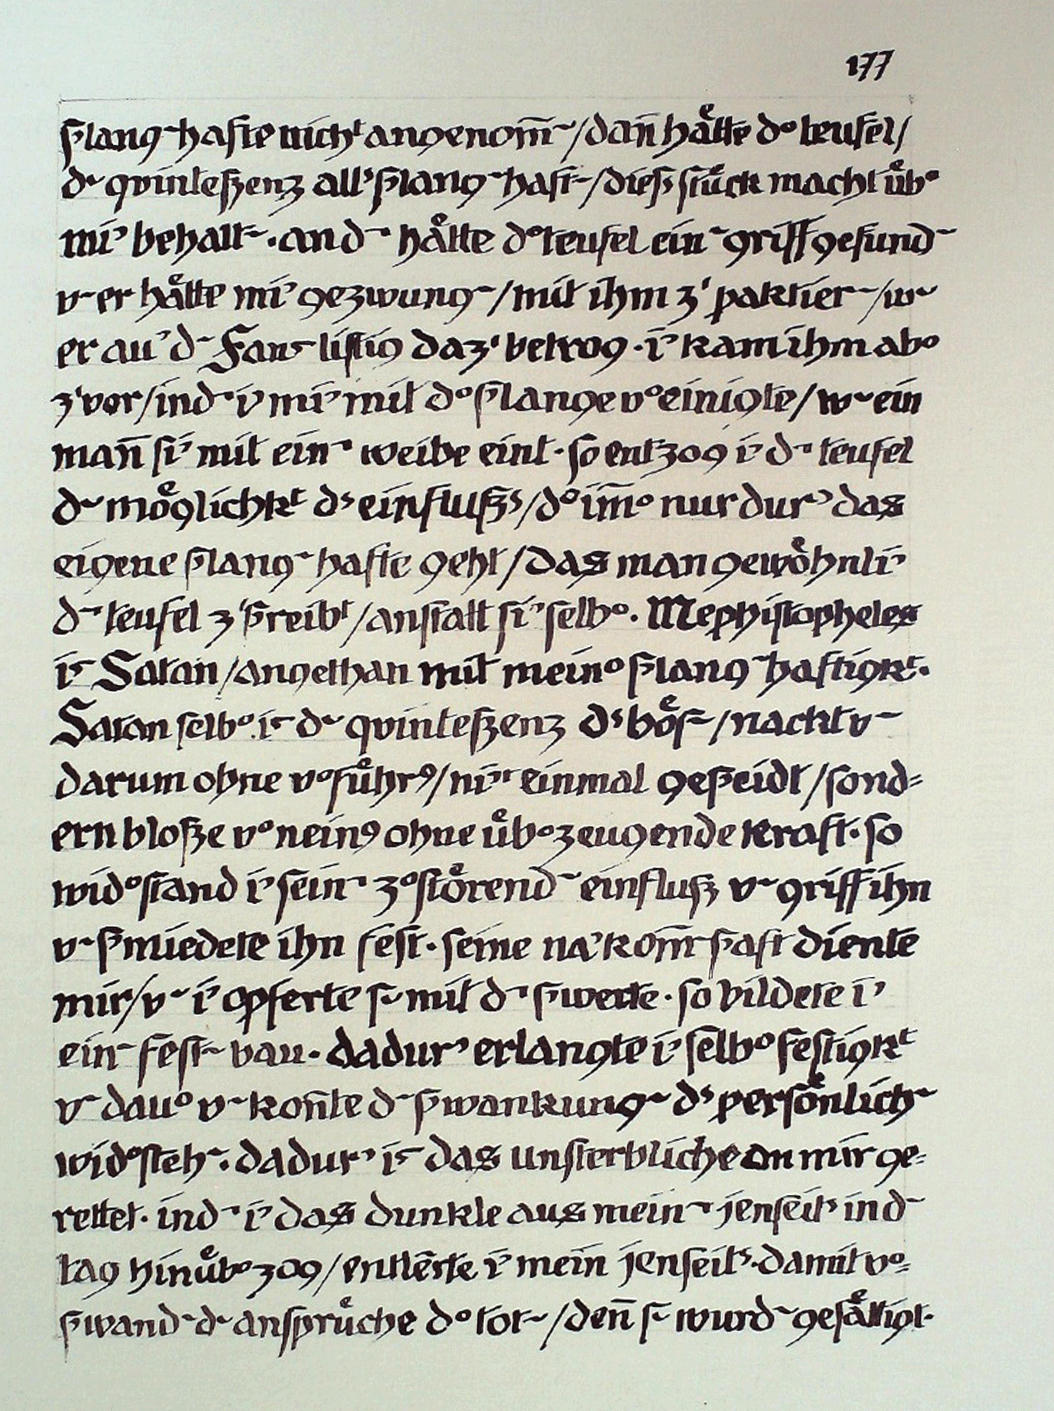 177
ſ˜lang˜hafte nich^t angenom̄˜/dan̄ håtte d° teufel/
d˜ qvinteſzenz all' ſ˜lang˜haft˜/dieſz ſtůck macht ůb°
mi' behalt˜. and˜ håtte d° teufel ein˜ griff gefund˜
v˜ er håtte mi' gezwung˜/mit ihm z' paktier˜/w˜
er au' d˜ Fauſ˜ liſtig daz' betrog. i' kam ihm ab°
z'vor/ind˜ i' mi' mit d° ſ˜lange v°einigte/w˜ ein
man̄ ſi' mit ein˜ weibe eint. ſo entzog i' d˜ teufel
d˜ mo̊glichk^t d' einfluſz'/d° im̄° nur dur' das
eigene ſ˜lang˜hafte geht/das man gewo̊hnli'
d˜ teufel z' ſ˜reib^t/anſtatt ſi' ſelb°. Mephiſtopheles
i˜ Satan/angethan mit mein° ſ˜lang˜haftigk^t.
Satan ſelb° i˜ d˜ qvinteſzenz d' bo̊ſ˜/nackt v˜
darum ohne v°fůhr9/ni' einmal geſ˜eidt/ſond=
ern bloſze v°nein9 ohne ůb°zeugende kraft. ſo
wid°ſtand i' ſein˜ z°ſto̊rend˜ einfluſz v˜ griff ihn
v˜ ſ˜miedete ihn feſt. ſeine na'kom̄ſ˜aft diente
mir/v˜ i' opferte ſ˜ mit d˜ ſ˜werte. ſo bildete i'
ein˜ feſt˜ bau. dadur' erlangte i' ſelb° feſtigk^t
v˜ dau° v˜ kon̄te d˜ ſ˜wankung˜ d' perſo̊nlich˜
wid°ſteh˜. dadur' i˜ das unſterbliche an mir ge=
rettet. ind˜ i' das dunkle aus mein˜ jenſeit' in d˜
tag hinůb°zog/entlērte i' mein jenſeit'. damit v°=
ſ˜wand˜ d˜ anſprůche d° tot˜/den̄ ſ˜ wurd˜ geſåttigt.